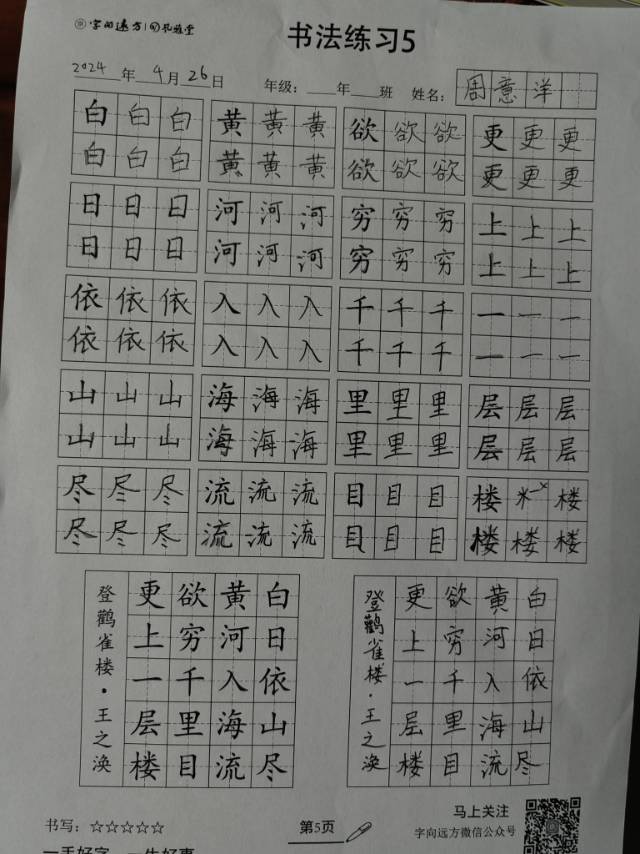 字向远方
书法练习5
2024年4月26日 年级：___年___班 姓名：周意洋
白白白 黄黄黄 欲欲欲 更更更
白白白 黄黄黄 欲欲欲 更更更
日日日 河河河 穷穷穷 上上上
日日日 河河河 穷穷穷 上上上
依依依 入入入 千千千 一一一
依依依 入入入 千千千 一一一
山山山 海海海 里里里 层层层
山山山 海海海 里里里 层层层
尽尽尽 流流流 目目目 楼 楼
尽尽尽 流流流 目目目 楼楼楼
白日依山尽
黄河入海流
欲穷千里目
更上一层楼
登鹳雀楼·王之涣
白日依山尽
黄河入海流
欲穷千里目
更上一层楼
登鹳雀楼·王之涣
书写：☆☆☆☆☆
第5页
马上关注
字向远方微信公众号
一手好字